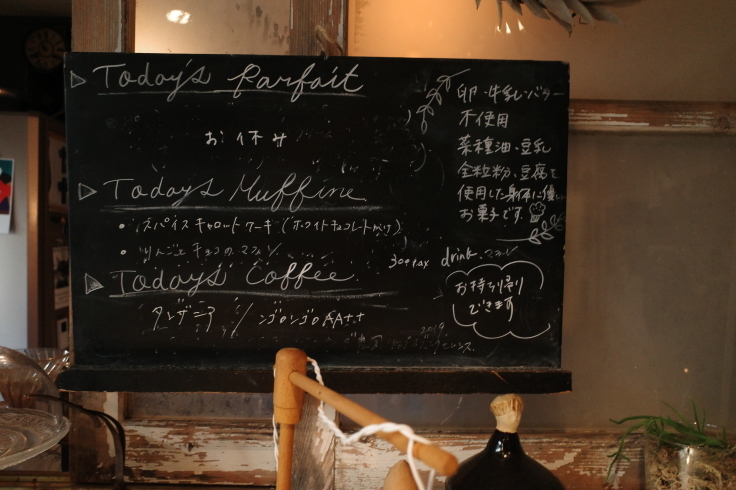 Today's Parfait
お休み
Today's Muffine
・スパイスキャロットケーキ(ホワイトチョコレートがけ)
・りんごとチョコのマフィン
Today's Coffee
タンザニア / ンゴロンゴロAA++
2019
卵・牛乳・バター
不使用
菜種油・豆乳
全粒粉、豆腐を
使用した身体に優しい
お菓子です。
drink、マフィン
お持ち帰り
できます